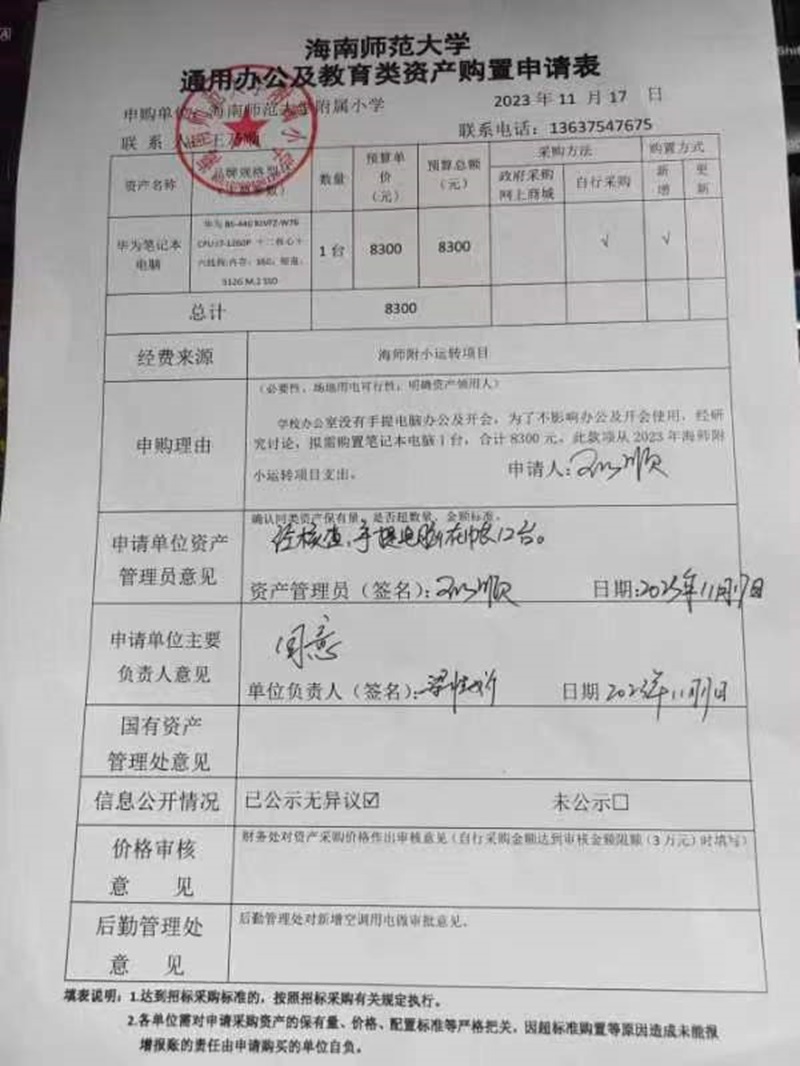 海南师范大学
通用办公及教育类资产购置申请表
申购单位：海南师范大学附属小学 2023 年 11 月 17 日
联系人： 联系电话：13637547675
资产名称 品牌规格型号 数量 预算单价（元） 预算总额（元） 采购方法 购置方式
政府采购网上商城 自行采购 新增 更新
华为笔记本电脑 1台 8300 8300 √ √
华为 B5-440 KLVFZ-W76
CPU:i7-1260P 十二核心十
六线程;内存：16G；硬盘：
512G M.2 SSD
总计 8300
经费来源 海师附小运转项目
（必要性，场地用电可行性，明确资产领用人）
申购理由
学校办公室没有手提电脑办公及开会，为了不影响办公及开会使用，经研
究讨论，拟需购置笔记本电脑1台，合计8300元。此款项从2023年海师附
小运转项目支出。 申请人：
申请单位资产管理员意见
确认同类资产保有量，是否超数量、金额标准。
经核查，手提电脑在帐12台。
资产管理员（签名）： 日期：2023年11月17日
申请单位主要负责人意见
同意
单位负责人（签名）： 日期 2023年11月17日
国有资产
管理处意见
信息公开情况 已公示无异议☑ 未公示□
价格审核
意 见
财务处对资产采购价格作出审核意见（自行采购金额达到审核金额限额（3万元）时填写）
后勤管理处
意 见
后勤管理处对新增空调用电做审批意见。
填表说明：1.达到招标采购标准的，按照招标采购有关规定执行。
2.各单位需对申请采购资产的保有量、价格、配置标准等严格把关，因超标准购置等原因造成未能报
增报账的责任由申请购买的单位自负。